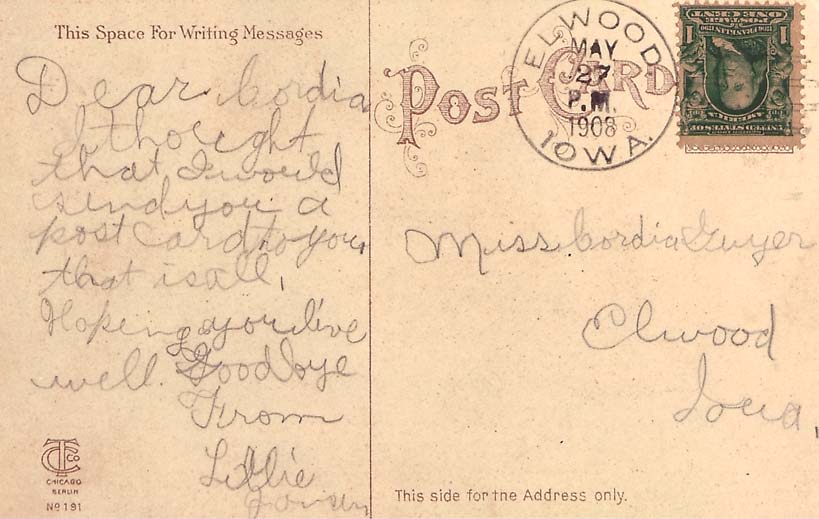 This Space For Writing Messages
Dear Cordia
I thought
that I would
send you a
post card to you,
that is all,
Hoping you live
well. Goodbye
From
Lillie
CTCo
CHICAGO
BERLIN
No 191
POST CARD
ELWOOD
MAY
27
P.M.
1908
IOWA.
UNITED STATES OF AMERICA
1 1
ONE CENT
Miss Cordia Guyer
Elwood
Iowa,
This side for the Address only.